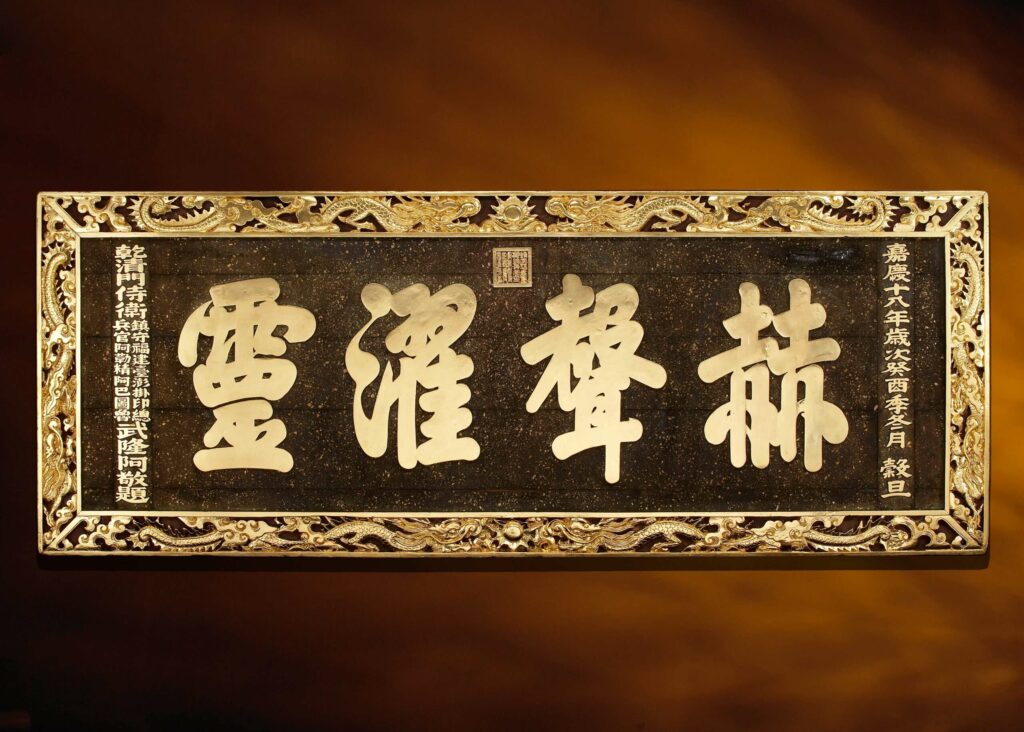 嘉慶十八年歲次癸酉季冬月 穀旦
赫聲濯靈
乾清門侍衛
鎮守福建臺澎掛印總
兵官阿勒精阿巴圖魯
武隆阿敬題